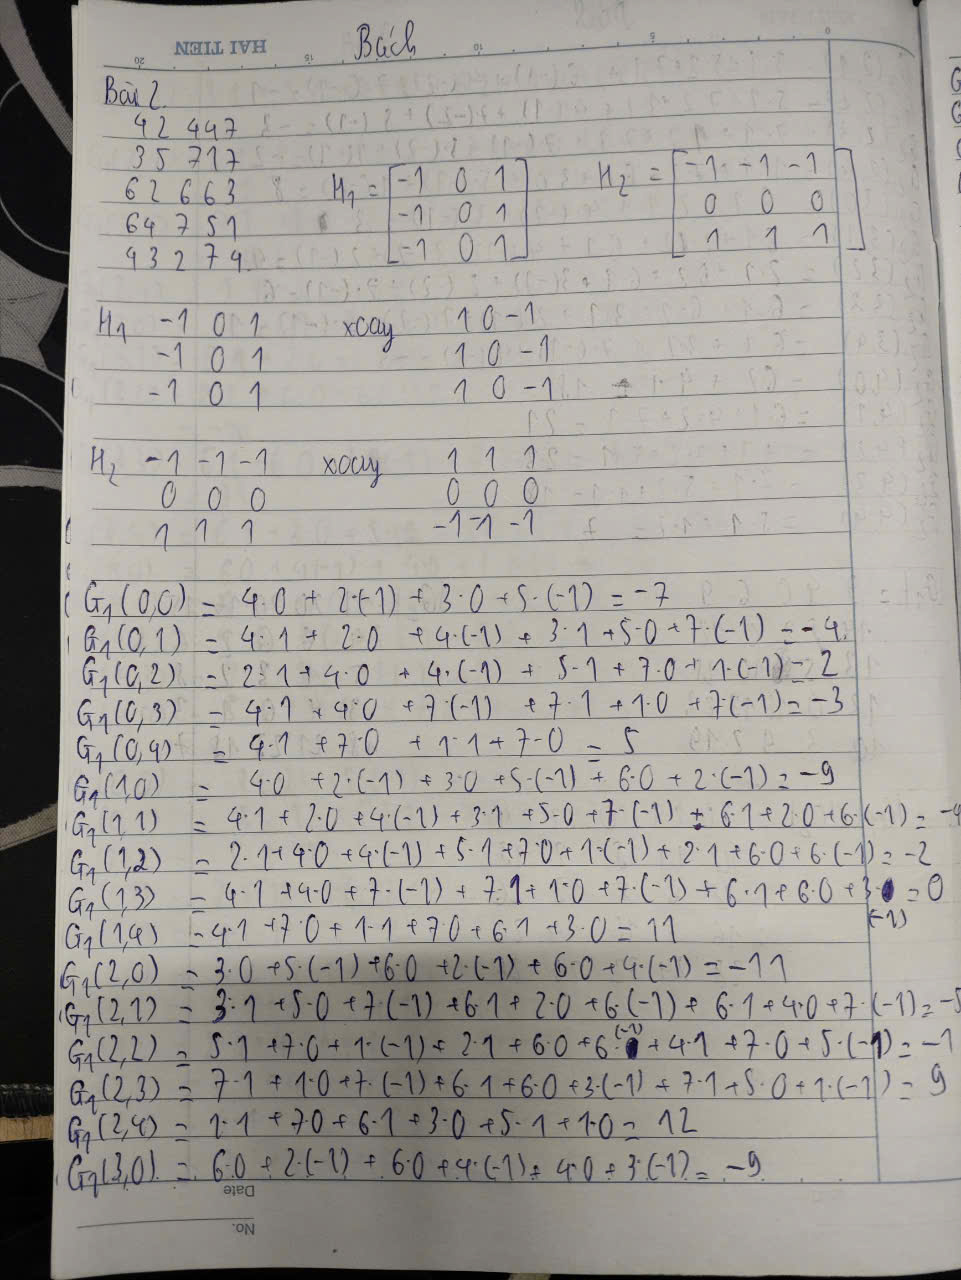 HAI TIEN
Bách
20 15 10 5 0
Bài 2.
4 2 4 4 7
3 5 7 1 7
6 2 6 6 3
6 4 7 5 1
4 3 2 7 4
H₁ = [-1 0 1
-1 0 1
-1 0 1]
H₂ = [-1 -1 -1
0 0 0
1 1 1]
H₁ -1 0 1 xoay 1 0 -1
-1 0 1 1 0 -1
-1 0 1 1 0 -1
H₂ -1 -1 -1 xoay 1 1 1
0 0 0 0 0 0
1 1 1 -1 -1 -1
G₁(0,0) = 4·0 + 2·(-1) + 3·0 + 5·(-1) = -7
G₁(0,1) = 4·1 + 2·0 + 4·(-1) + 3·1 + 5·0 + 7·(-1) = -4.
G₁(0,2) = 2·1 + 4·0 + 4·(-1) + 5·1 + 7·0 + 1·(-1) = 2
G₁(0,3) = 4·1 + 4·0 + 7·(-1) + 7·1 + 1·0 + 7·(-1) = -3
G₁(0,4) = 4·1 + 7·0 + 1·1 + 7·0 = 5
G₁(1,0) = 4·0 + 2·(-1) + 3·0 + 5·(-1) + 6·0 + 2·(-1) = -9
G₁(1,1) = 4·1 + 2·0 + 4·(-1) + 3·1 + 5·0 + 7·(-1) + 6·1 + 2·0 + 6·(-1) = -4
G₁(1,2) = 2·1 + 4·0 + 4·(-1) + 5·1 + 7·0 + 1·(-1) + 2·1 + 6·0 + 6·(-1) = -2
G₁(1,3) = 4·1 + 4·0 + 7·(-1) + 7·1 + 1·0 + 7·(-1) + 6·1 + 6·0 + 3·(-1) = 0
G₁(1,4) = 4·1 + 7·0 + 1·1 + 7·0 + 6·1 + 3·0 = 11
G₁(2,0) = 3·0 + 5·(-1) + 6·0 + 2·(-1) + 6·0 + 4·(-1) = -11
G₁(2,1) = 3·1 + 5·0 + 7·(-1) + 6·1 + 2·0 + 6·(-1) + 6·1 + 4·0 + 7·(-1) = -5
G₁(2,2) = 5·1 + 7·0 + 1·(-1) + 2·1 + 6·0 + 6·(-1) + 4·1 + 7·0 + 5·(-1) = -1
G₁(2,3) = 7·1 + 1·0 + 7·(-1) + 6·1 + 6·0 + 3·(-1) + 7·1 + 5·0 + 1·(-1) = 9
G₁(2,4) = 1·1 + 7·0 + 6·1 + 3·0 + 5·1 + 1·0 = 12
G₁(3,0) = 6·0 + 2·(-1) + 6·0 + 4·(-1) + 4·0 + 3·(-1) = -9
Date
No.